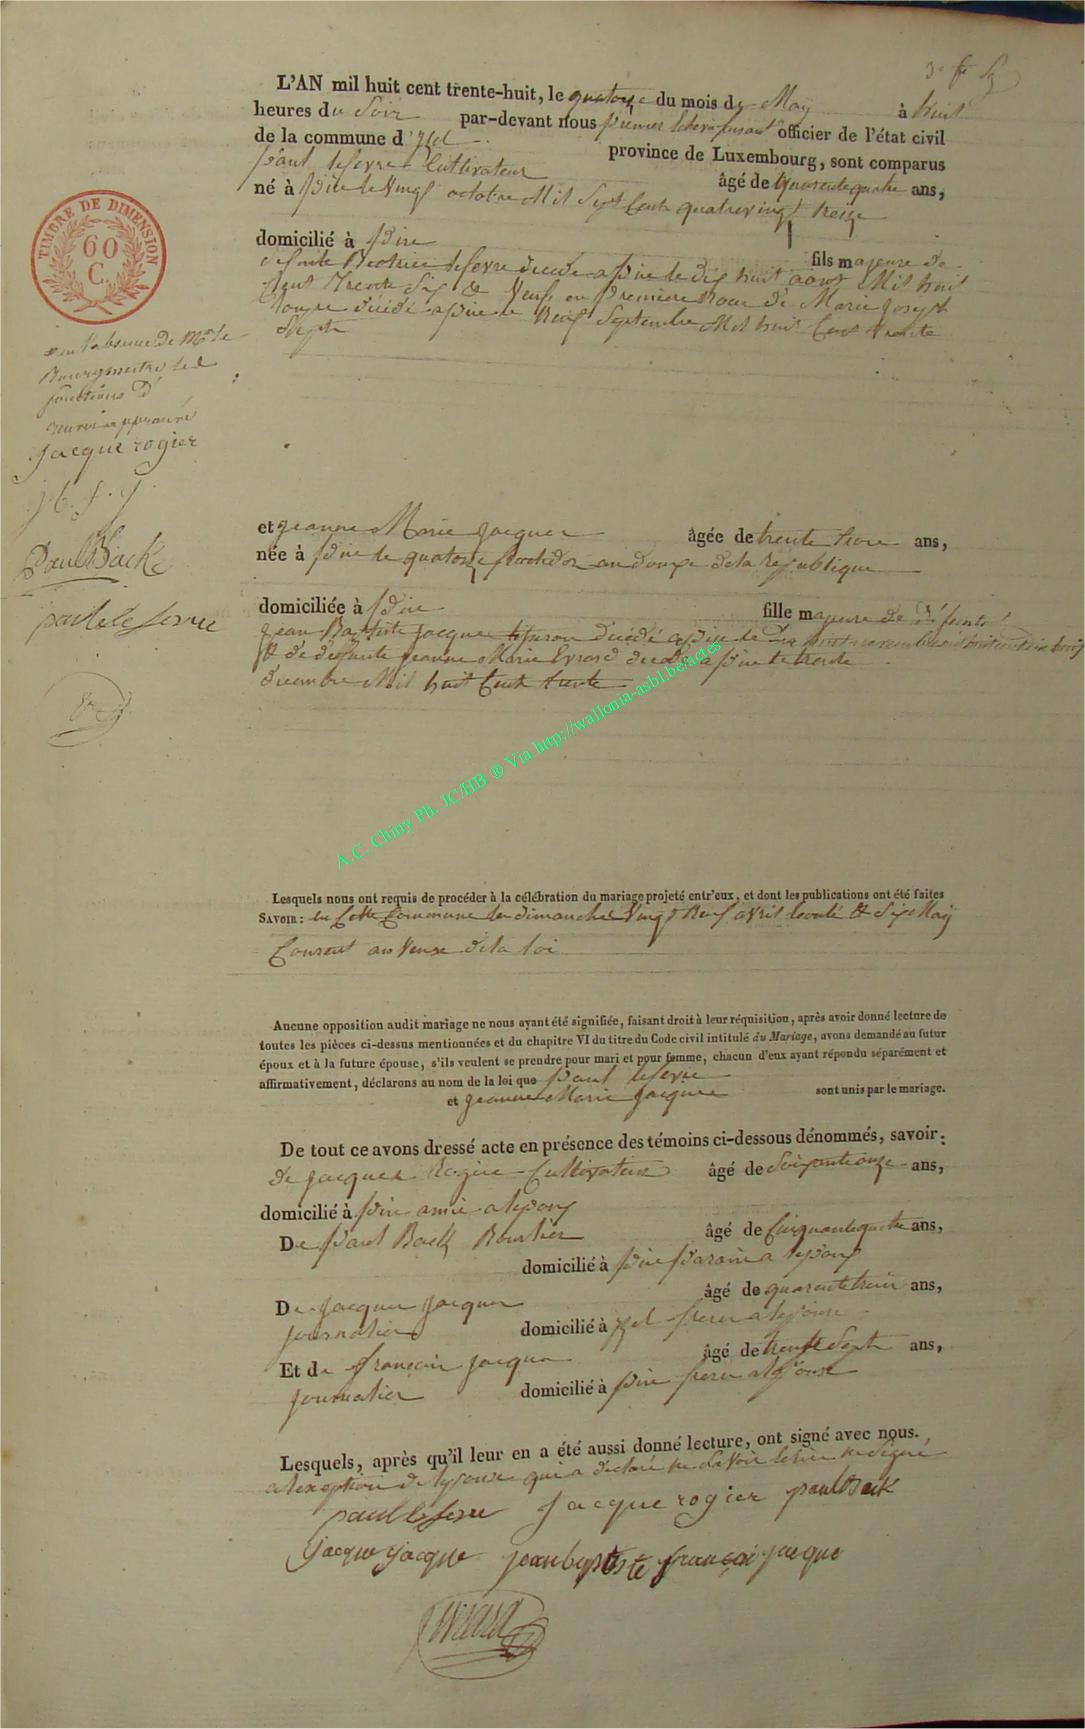 L'AN mil huit cent trente-huit, le quatorze du mois de May à huit
heures du Soir par-devant nous premier Echevin faisant officier de l'état civil
de la commune d'Izel province de Luxembourg, sont comparus
paul lefevre Cultivateur âgé de quarente quatre ans,
né à pin le Vingt octobre Mil Sept Cent quatrevingt treize
domicilié à pin fils majeure de
defunte Beatrice lefevre decedé a pin le dix huit aout Mil huit
Cent Trente Six & Veuf en premiere noce de Marie Joseph
decédé a pin le Neuf Septembre Mil huit Cent trente
Sept
TIMBRE DE DIMENSION
60
C.
en l'absence de Mr le
Bourgmestre les
fonctions d'
renvoi approuvé
Jacque rogier
j b. f. j.
Paul Back
paul le fevre
et jeanne Marie Jacques âgée de trente trois ans,
née à pin le quatorze fructidor an douze de la republique
domiciliée à pin fille majeure de defunts
Jean Baptiste Jacques decédé a pin le
& de defunte jeanne Marie Evrard decedé a pin le trente
decembre Mil huit Cent trente
A.C. Chiny Ph. JC/HB ® Via http://wallonia-asbl.be/actes
Lesquels nous ont requis de procéder à la célébration du mariage projeté entr'eux, et dont les publications ont été faites
SAVOIR: en Cette Commune les dimanches Vingt Neuf avril écoulé & Six May
Courent au Veux de la loi
Aucune opposition audit mariage ne nous ayant été signifiée, faisant droit à leur réquisition, après avoir donné lecture de
toutes les pièces ci-dessus mentionnées et du chapitre VI du titre du Code civil intitulé du Mariage, avons demandé au futur
époux et à la future épouse, s'ils veulent se prendre pour mari et pour femme, chacun d'eux ayant répondu séparément et
affirmativement, déclarons au nom de la loi que paul lefevre
et jeanne Marie Jacques sont unis par le mariage.
De tout ce avons dressé acte en présence des témoins ci-dessous dénommés, savoir:
de Jacques Rogier Cultivateur âgé de Soixante onze ans,
domicilié à pin amie a lepoux
De paul Back âgé de Cinquante quatre ans,
domicilié à pin parain a lepoux
De Jacque Jacques âgé de quarente trois ans,
journalier domicilié à Izel frere a lepouse
Et de françois Jacques âgé de trente Sept ans,
journalier domicilié à pin frere a lepouse
Lesquels, après qu'il leur en a été aussi donné lecture, ont signé avec nous.
a lexception de lepouse qui a declaré ne Savoir lire ne Signé
paul le fevre Jacque rogier paul Back
Jacque Jacque jean baptiste françoi jacque